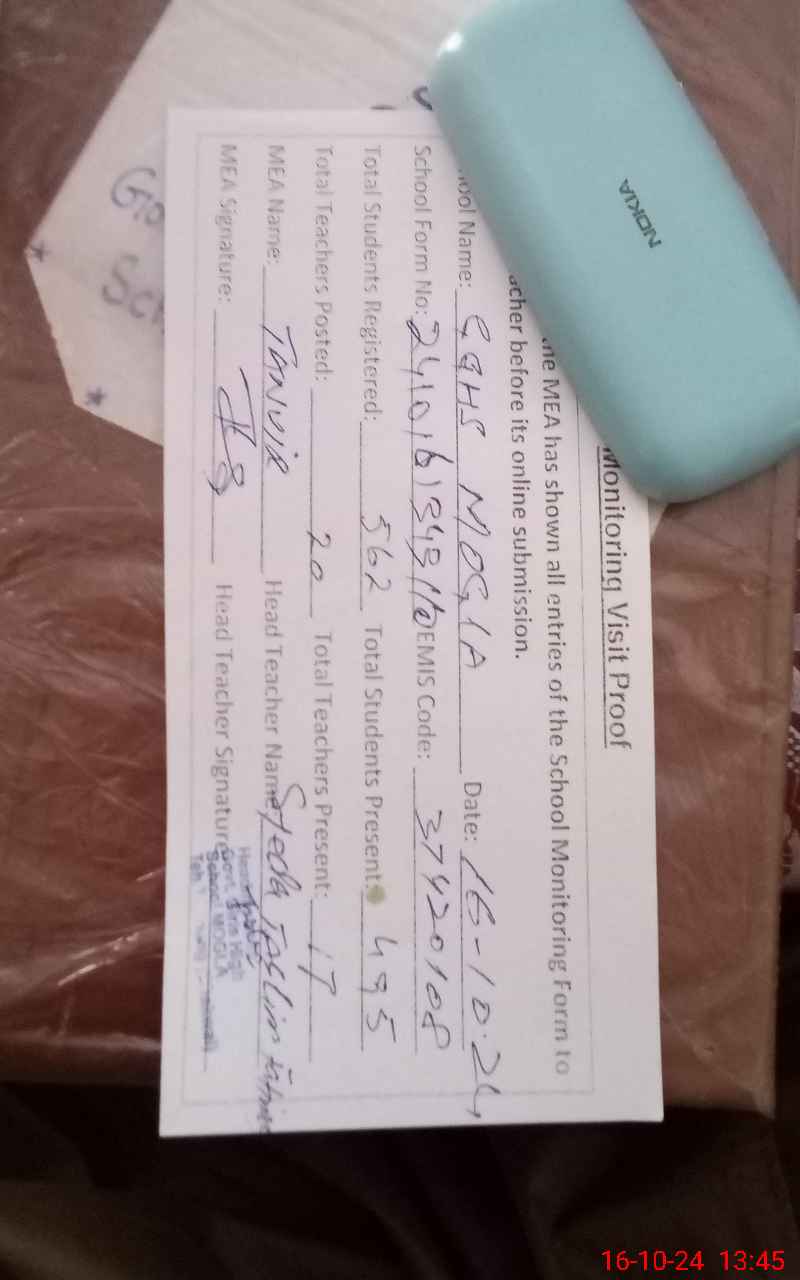 Monitoring Visit Proof
the MEA has shown all entries of the School Monitoring Form to
acher before its online submission.
ool Name: GGHS MOGLA Date: 16-10-24
School Form No: EMIS Code: 37420108
Total Students Registered: 562 Total Students Present: 495
Total Teachers Posted: 20 Total Teachers Present: 17
MEA Name: TANVIR Head Teacher Name: Syeda Taslim
MEA Signature: Head Teacher Signature
Govt. Girls High
School MOGLA
NOKIA
16-10-24 13:45